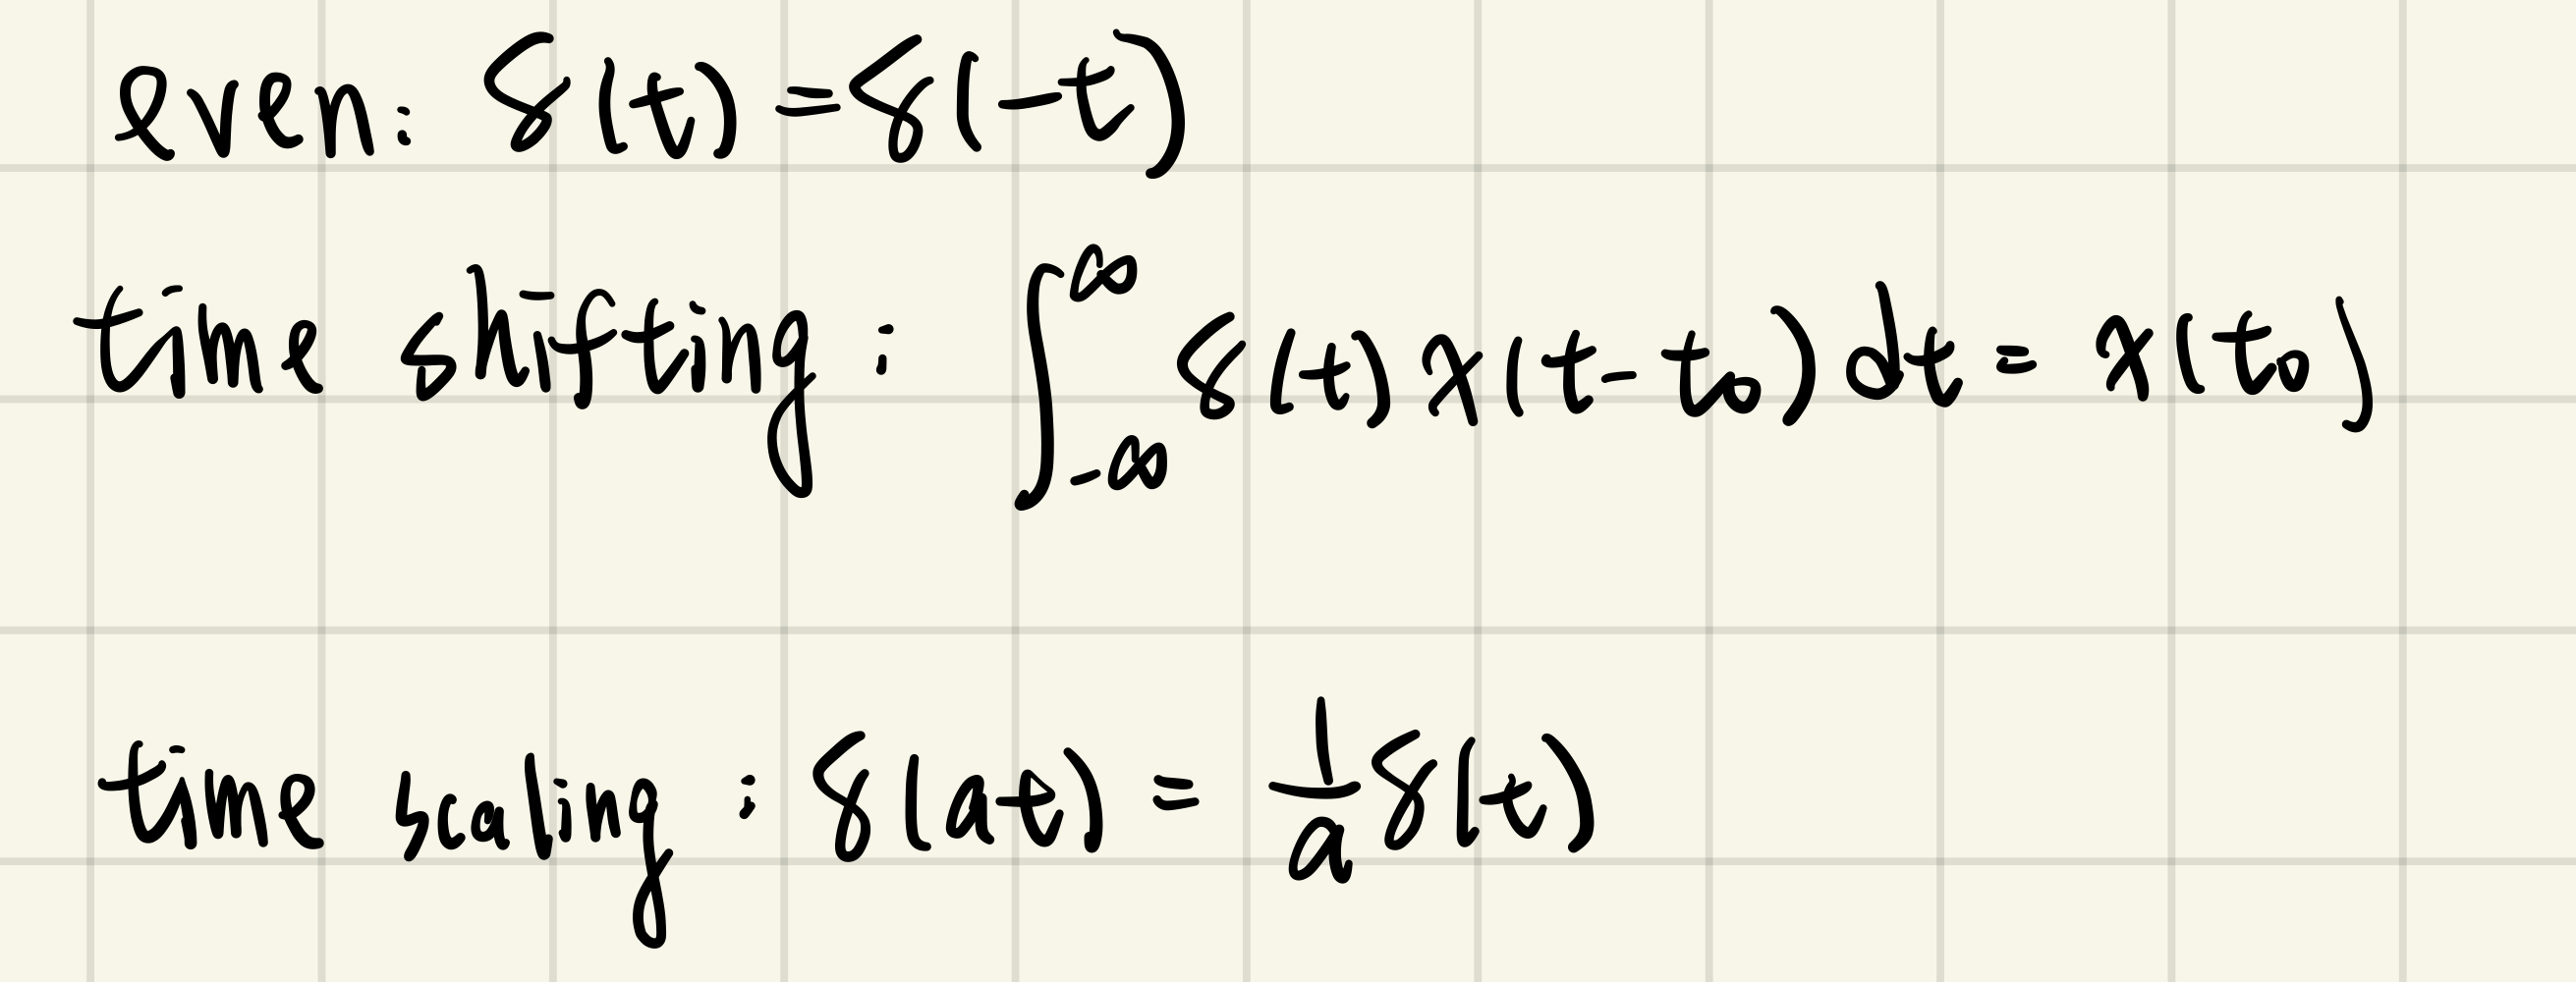 even: δ(t) = δ(-t)
time shifting : ∫_{-∞}^{∞} δ(t) x(t-t₀) dt = x(t₀)
time scaling : δ(at) = 1/a δ(t)